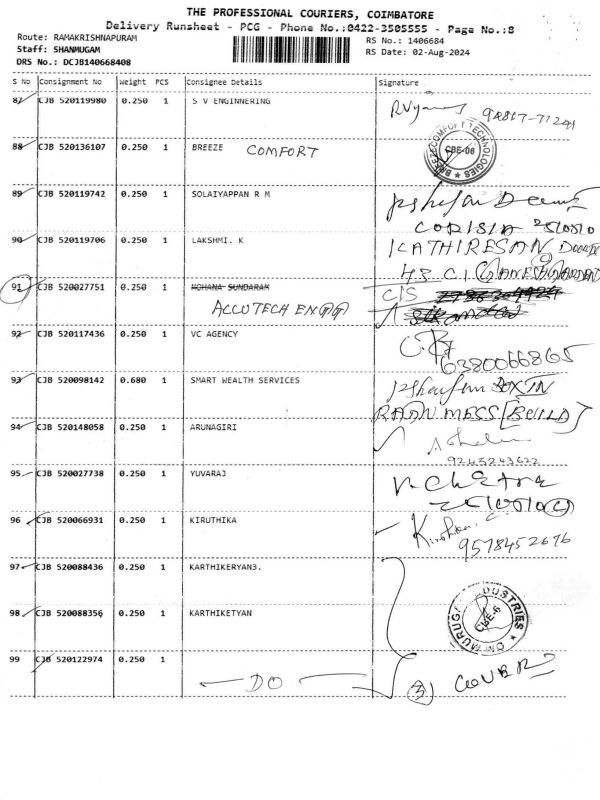 THE PROFESSIONAL COURIERS, COIMBATORE
Delivery Runsheet - PCG - Phone No.:0422-3505555 - Page No.:8
Route: RAMAKRISHNAPURAM
Staff: SHANMUGAM
DRS No.: DCJB140668408
RS No.: 1406684
RS Date: 02-Aug-2024
S No Consignment No Weight PCS Consignee Details Signature
87 CJB 520119980 0.250 1 S V ENGINNERING
88 CJB 520136107 0.250 1 BREEZE COMFORT
BREEZE COMFORT TECHNOLOGIES CBE-06
89 CJB 520119742 0.250 1 SOLAIYAPPAN R M
90 CJB 520119706 0.250 1 LAKSHMI. K KATHIRESAN
91 CJB 520027751 0.250 1 MOHANA SUNDARAM
ACCUTECH ENGG
92 CJB 520117436 0.250 1 VC AGENCY
6380066865
93 CJB 520098142 0.680 1 SMART WEALTH SERVICES
94 CJB 520148058 0.250 1 ARUNAGIRI
9245243622
95 CJB 520027738 0.250 1 YUVARAJ
96 CJB 520066931 0.250 1 KIRUTHIKA
9578452676
97 CJB 520088436 0.250 1 KARTHIKERYAN3.
98 CJB 520088356 0.250 1 KARTHIKETYAN
OM MURUGA INDUSTRIES CBE-6
99 CJB 520122974 0.250 1
DO 3